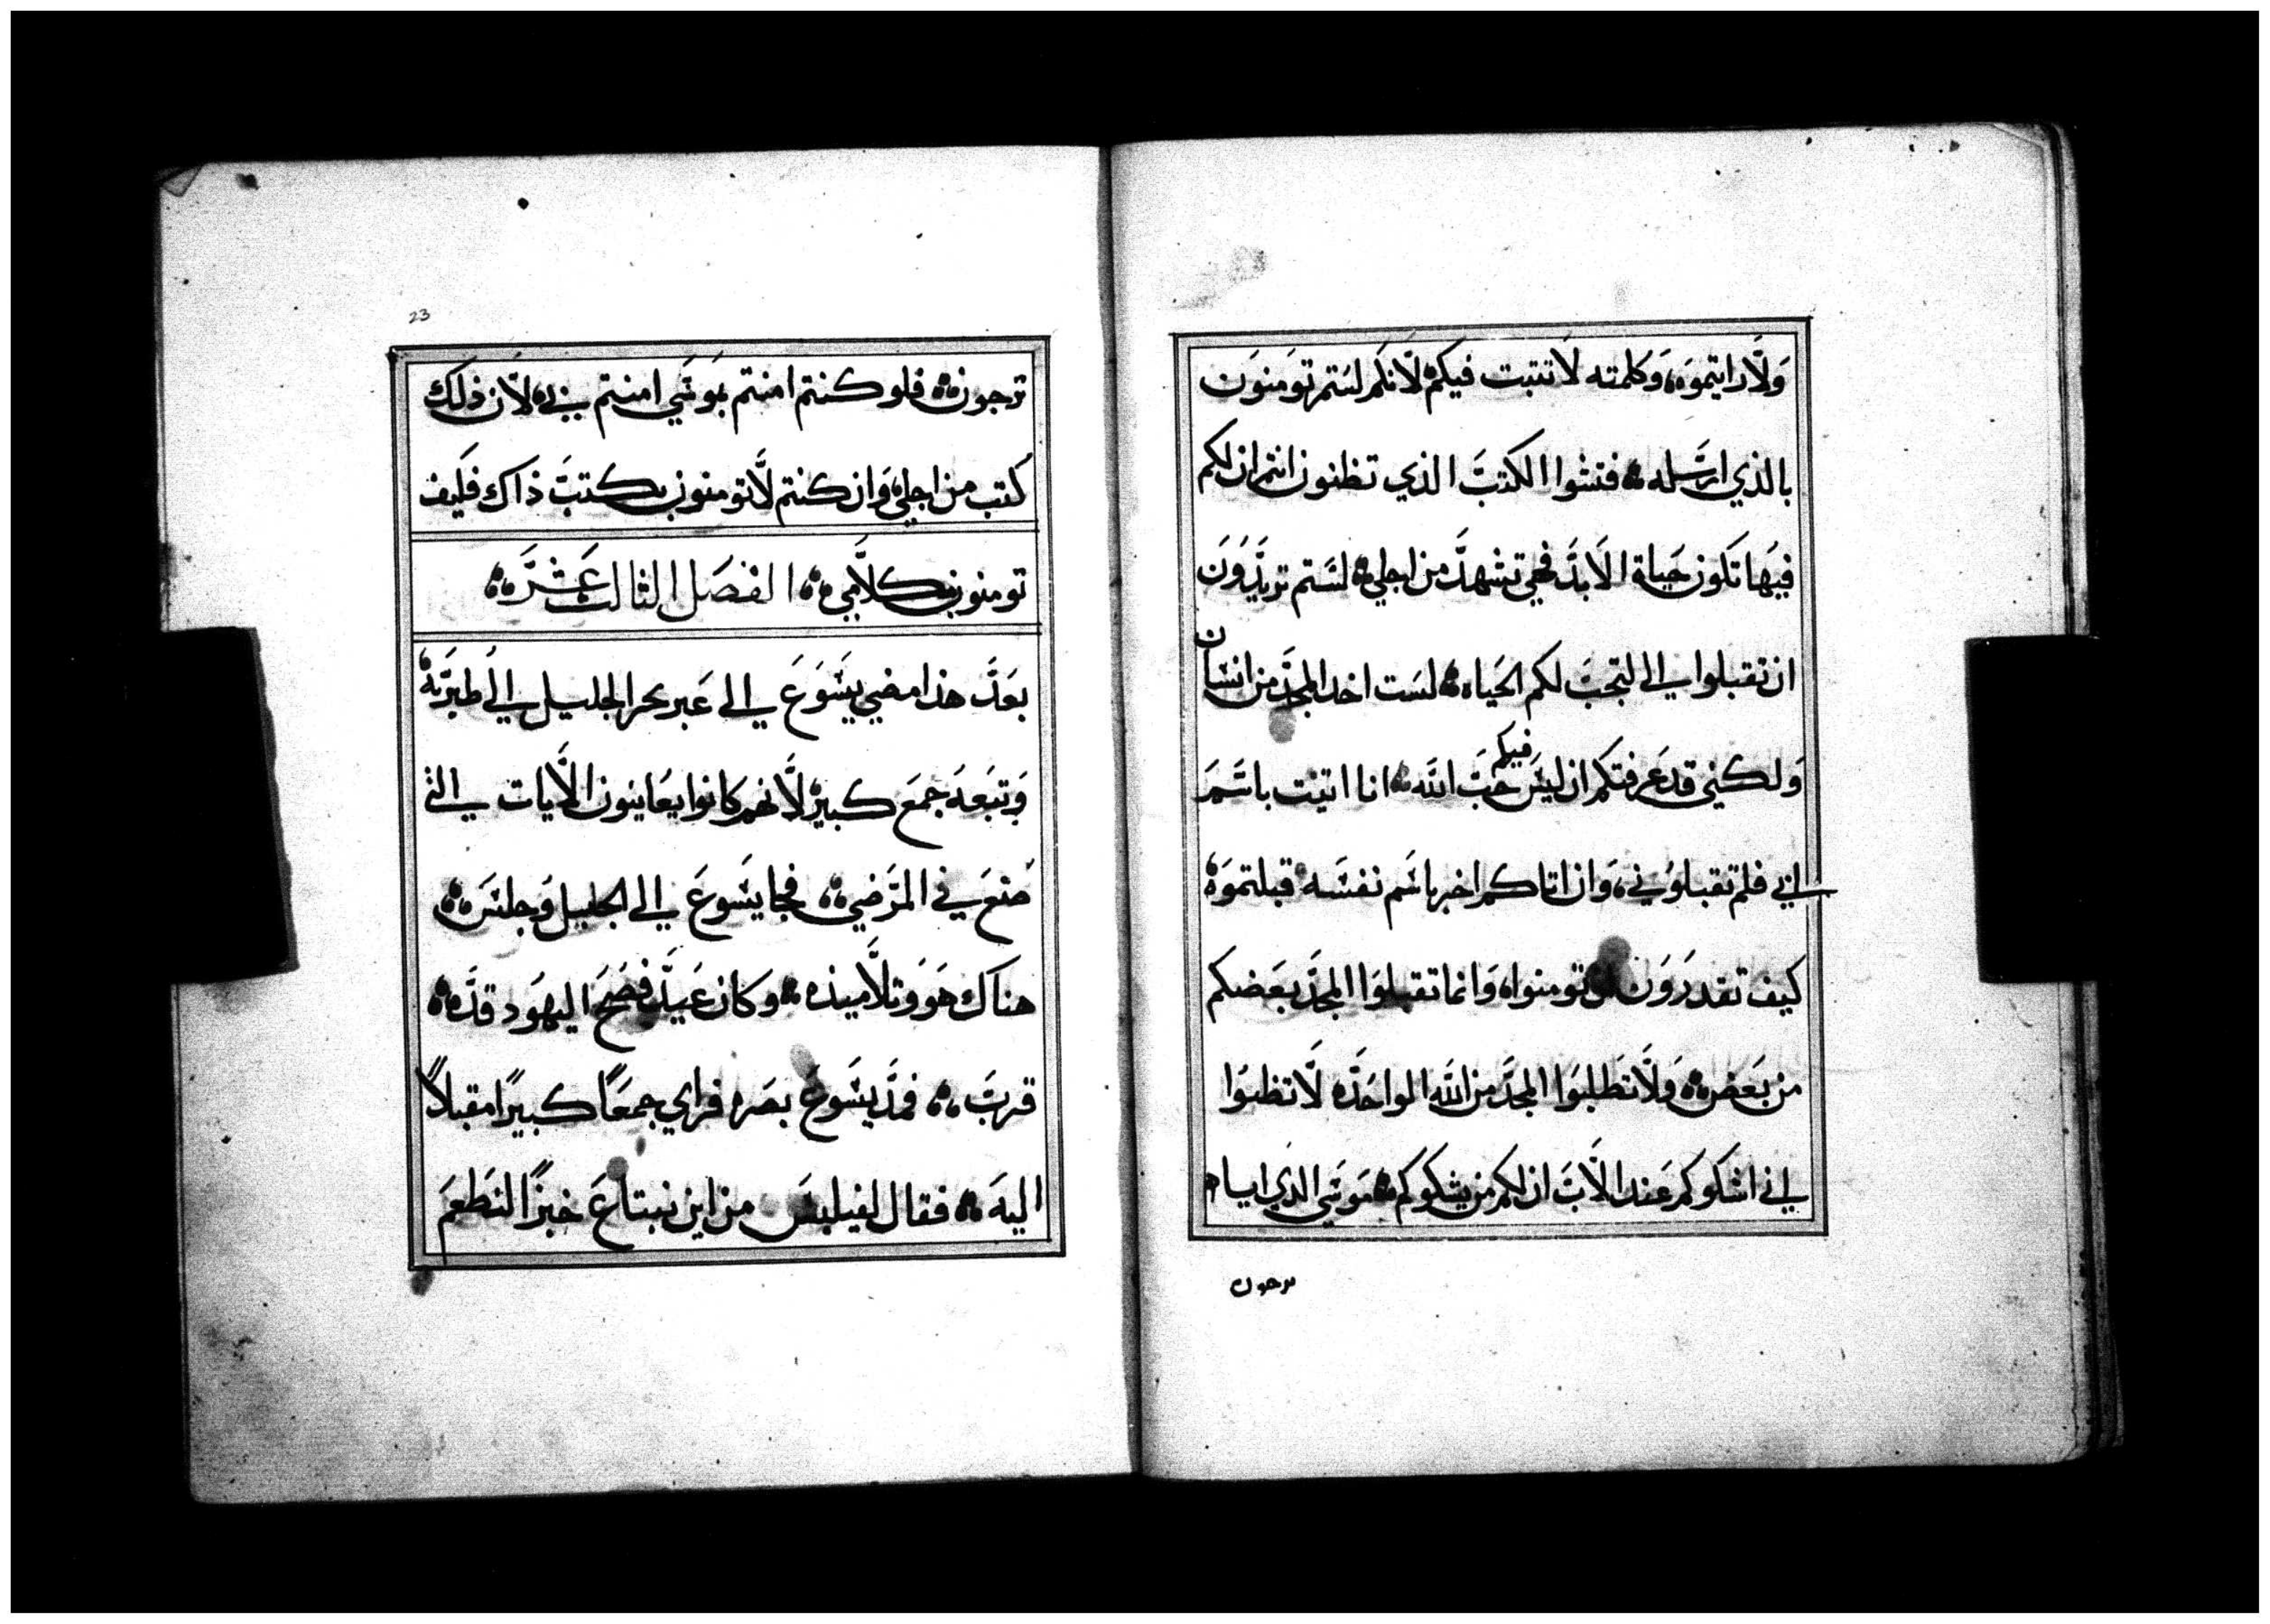 ولا رايتموه، وكلمته لا تتبت فيكم لانكم لستم تومنون
بالذي ارسله ؞ فتشوا الكتب الذي تظنون انتم ان لكم
فيها تكون حياة الابد فهي تشهد من اجلي ؞ لستم تريدون
ان تقبلوا الي لتجب لكم الحياه ؞ لست اخد المجد من انسان
ولكنني قد عرفتكم ان ليس فيكم حب الله ؞ انا اتيت باسم
ابي فلم تقبلوني، وان اتاكم اخر باسم نفسه قبلتموه
كيف تقدرون ان تومنوا وانما تقبلوا المجد بعضكم
من بعض ؞ ولا تطلبوا المجد من الله الواحد لا تظنوا
اني اشكوكم عند الاب ان لكم من يشكوكم ؞ موسي الذي اياه
ترجون
23
ترجون ؞ فلو كنتم امنتم بموسي امنتم بي لان ذلك
كتب من اجلي وان كنتم لا تومنون بكتب ذاك فكيف
تومنون بكلامي ؞ الفصل الثالث عشر ؞
بعد هذا مضي يسوع الي عبر بحر الجليل الي طبريه
وتبعه جمع كبير لانهم كانوا يعاينون الايات التي
صنع في المرضي ؞ فجا يسوع الي الجليل وجلس ؞
هناك هو وتلاميذه ؞ وكان عيد فصح اليهود قد ؞
قرب ؞ فمد يسوع بصره فراي جمعًا كبيرًا مقبلاً
اليه ؞ فقال لفيلبس من اين نبتاع خبزًا لنطعم